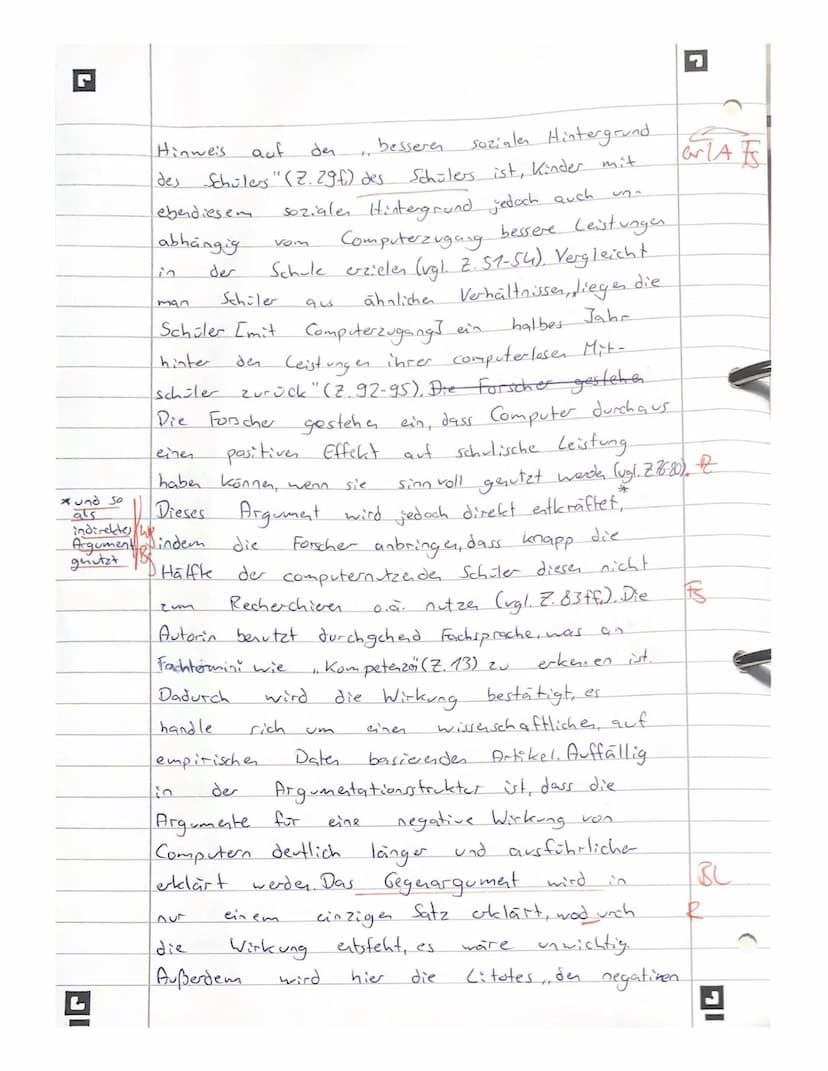 Hinweis auf den „besseren sozialen Hintergrund
Gr/A Fs
des Schülers" (Z. 29f.) des Schülers ist, Kinder mit
ebendiesem sozialen Hintergrund jedoch auch un-
abhängig vom Computerzugang bessere Leistungen
in der Schule erzielen (vgl. Z. 51-54). Vergleicht
man Schüler aus ähnlichen Verhältnissen, „liegen die
Schüler [mit Computerzugang] ein halbes Jahr
hinter den Leistungen ihrer computerlosen Mit-
schüler zurück" (Z. 92-95). Die Forscher gestehen
Die Forscher gestehen ein, dass Computer durchaus
einen positiven Effekt auf schulische Leistung
haben können, wenn sie sinnvoll genutzt werden (vgl. Z. 76-80). R
* und so
als
indirektes
Argument
genutzt
Dieses Argument wird jedoch direkt entkräftet,*
indem die Forscher anbringen, dass knapp die
Hälfte der computernutzenden Schüler diesen nicht
zum Recherchieren o.ä. nutzen (vgl. Z. 83ff.). Die
Fs
Autorin benutzt durchgehend Fachsprache, was an
Fachtermini wie „Kompetenzen" (Z. 13) zu erkennen ist.
Dadurch wird die Wirkung bestätigt, es
handle sich um einen wissenschaftlichen, auf
empirischen Daten basierenden Artikel. Auffällig
in der Argumentationsstruktur ist, dass die
Argumente für eine negative Wirkung von
Computern deutlich länger und ausführlicher
erklärt werden. Das Gegenargument wird in
BL
nur einem einzigen Satz erklärt, wodurch
R
die Wirkung entsteht, es wäre unwichtig.
Außerdem wird hier die Litotes „den negativen